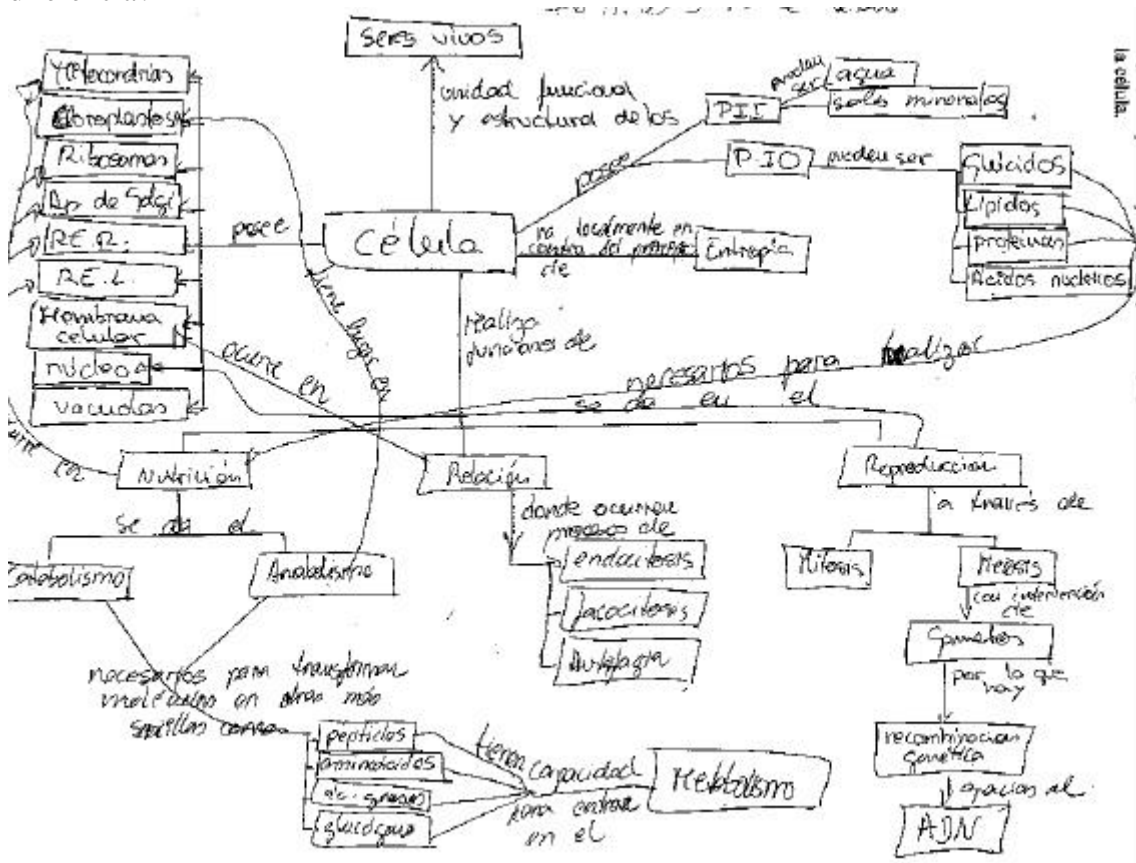 la célula.
Seres vivos
unidad funcional
y estructura de los
Mitocondrias
Cloroplastos
Ribosomas
Ap. de Golgi
R.E.R.
R.E.L.
Membrana
celular
núcleo
vacuolas
posee
Célula
posee
PII
pueden
ser
agua
sales minerales
P.IO
pueden ser
Glúcidos
Lípidos
proteínas
Ácidos nucleicos
va localmente en
contra del principio
de
Entropía
realiza
funciones de
tiene lugar en
ocurre en
necesarios para realizar
se da en el
ocurre en
Nutrición
Relación
Reproducción
se da el
Catabolismo
Anabolismo
donde ocurren
procesos de
endocitosis
fagocitosis
Autofagia
a través de
Mitosis
Meiosis
con intervención
de
Gametos
por lo que
hay
recombinacion
genética
gracias al
ADN
necesarios para transformar
moléculas en otras más
sencillas como
peptidos
aminoácidos
ac. grasos
glucógeno
tienen capacidad
para entrar
en el
Metabolismo